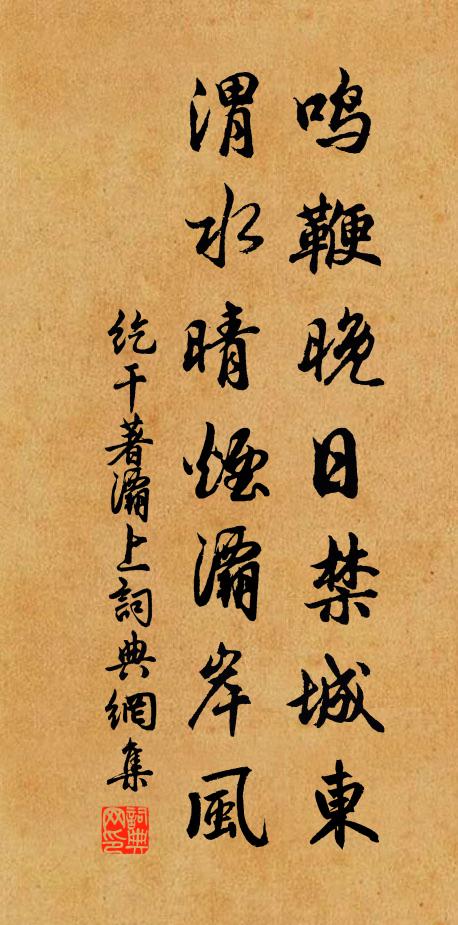 鸣鞭晚日禁城東
渭水晴煙灞岸風
紇干著灞上詞典網集
詞典网印